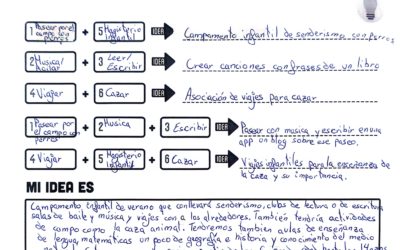 1 Pasear por el campo con perros + 5 Magisterio infantil IDEA Campamento infantil de senderismo con perros
2 Musica/ Bailar + 3 Leer/ Escribir IDEA Crear canciones con frases de un libro
4 Viajar + 6 Cazar IDEA Asociación de viajes para cazar
1 Pasear por el campo con perros + 2 Musica + 3 Escribir IDEA Pasear con musica y escribir en una
app un blog sobre ese paseo.
4 Viajar + 5 Magisterio infantil + 6 Cazar IDEA Viajes infantiles para la enseñanza de
la caza y su importancia.
MI IDEA ES
Campamento infantil de verano que conllevará senderismo, clubs de lectura o de escritura
salas de baile y música y viajes con a los alrededores. También tendría actividades
de campo como la caza animal. Tendremos tambien aulas de enseñanza
de lengua, matemáticas un poco de geografia e historia y conocimiento del medio